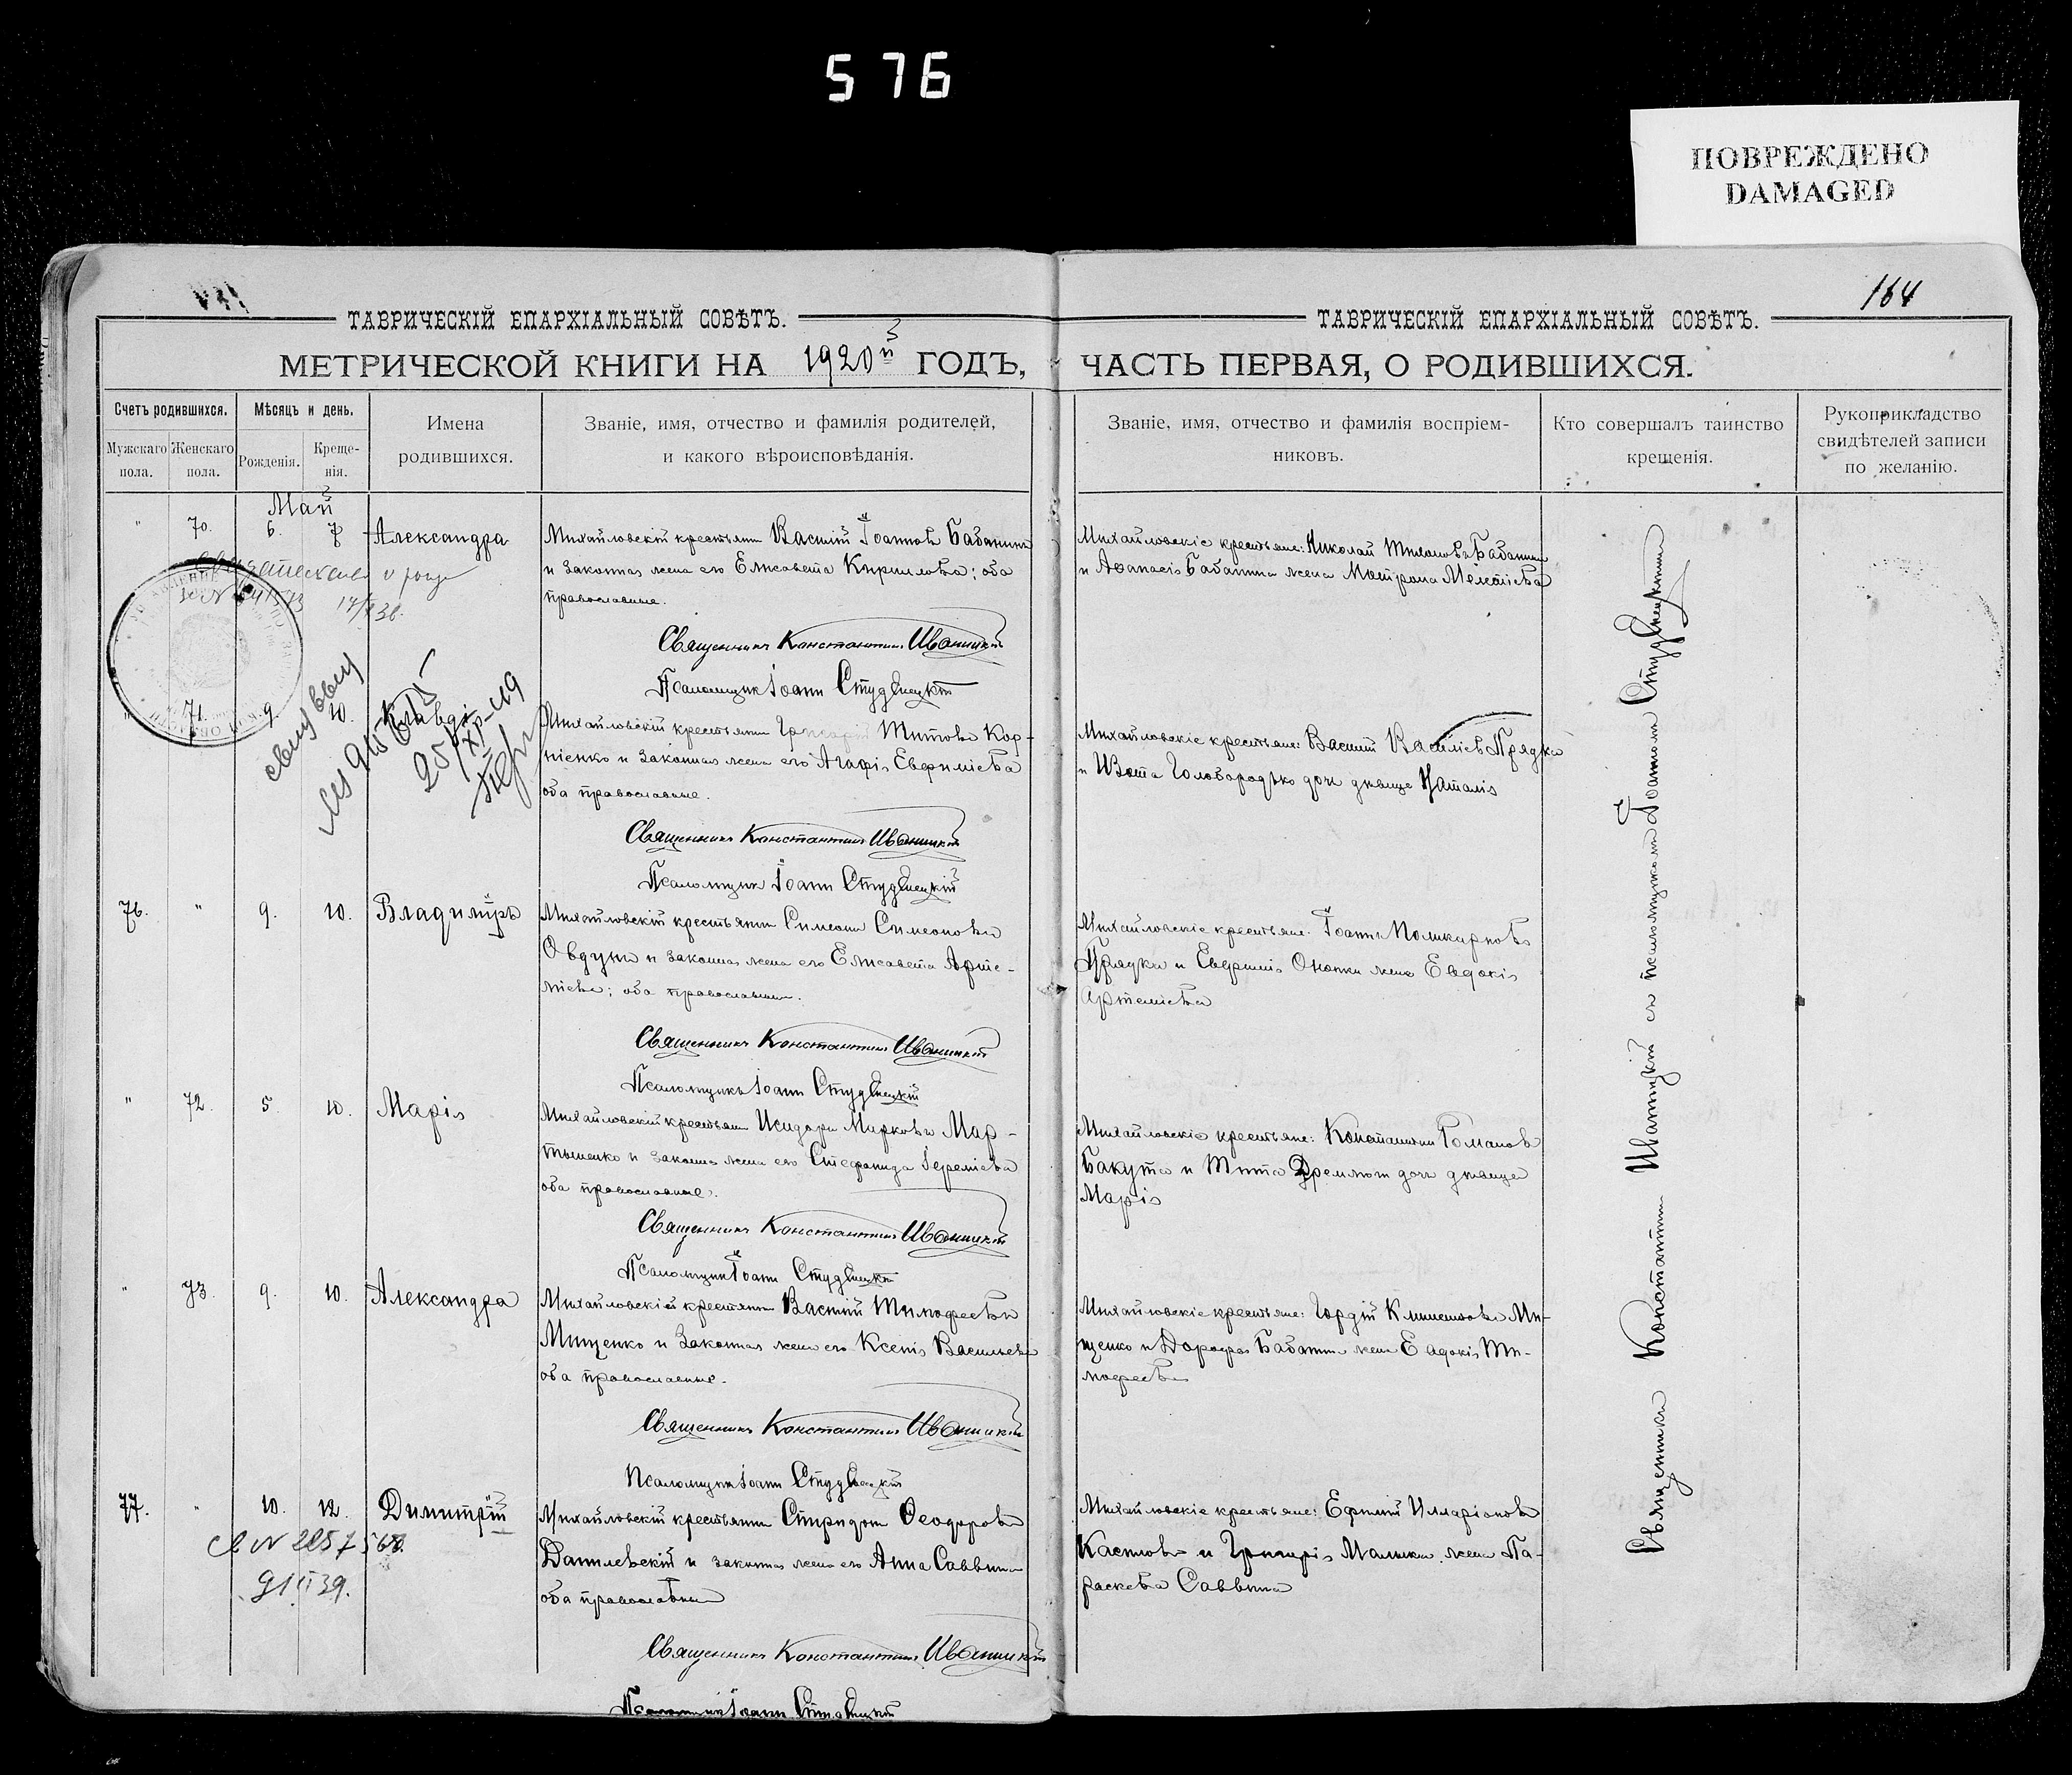 576
ПОВРЕЖДЕНО
DAMAGED
164
ТАВРИЧЕСКІЙ ЕПАРХІАЛЬНЫЙ СОВѢТЪ.
МЕТРИЧЕСКОЙ КНИГИ НА 1920й ГОДЪ,
Счетъ родившихся.
Мужскаго пола.
Женскаго пола.
Мѣсяцъ и день.
Рожденія.
Креще-
нія.
Имена
родившихся.
Званіе, имя, отчество и фамилія родителей,
и какого вѣроисповѣданія.
ТАВРИЧЕСКІЙ ЕПАРХІАЛЬНЫЙ СОВѢТЪ.
ЧАСТЬ ПЕРВАЯ, О РОДИВШИХСЯ.
Званіе, имя, отчество и фамилія воспріем-
никовъ.
Кто совершалъ таинство
крещенія.
Рукоприкладство
свидѣтелей записи
по желанію.
Май
" 70. 6. 7 Александра
Михайловскій крестьянин Василій Іоаннов Бабанин
и законная жена его Елисавета Кириллова; оба
православные.
Священникъ Константинъ Иваницкій
Псаломщик Іоанн Студенецкій
Михайловскіе крестьяне: Николай Бабанин
и Аѳанасія Бабанина жена Матрона Мелетіева
" 71. 9. 10.
Михайловскій крестьянин Григорій Титовъ Кор-
ніенко и законная жена его Агафія Евфиміева
оба православные.
Священникъ Константинъ Иваницкій
Псаломщик Іоанн Студенецкій
Михайловскіе крестьяне: Василій Василіев Прядка
и Голобородько дочь дѣвица Наталія
25/XI-49
76. " 9. 10. Владиміръ
Михайловскій крестьянин Симеон Симеоновъ
Овдунъ и законная жена его Елисавета Арте-
міева; оба православные.
Священникъ Константинъ Иваницкій
Псаломщикъ Іоанн Студенецкій
Михайловскіе крестьяне: Іоанн Поликарповъ
Прядка и Евфимія жена Евдокія
Артеміева
" 72. 5. 10. Марія
Михайловскій крестьянин Исидоръ Марковъ Мар-
тыненко и законная жена его Стефанида Іереміева
оба православные.
Священникъ Константинъ Иваницкій
Псаломщик Іоанн Студенецкій
Михайловскіе крестьяне: Константин Романов
Бакута и Тита Дремлюги дочь дѣвица
Марія
" 73. 9. 10. Александра
Михайловскій крестьянин Василій Тимофеевъ
Мищенко и законная жена его Ксенія Васильева
оба православные.
Священникъ Константинъ Иваницкій
Псаломщик Іоанн Студенецкій
Михайловскіе крестьяне: Гордій Климентовъ Ми-
щенко и Дорофея Бабанина жена Евдокія Ти-
мофеева
77. " 10. 12. Димитрій
Михайловскій крестьянин Спиридон Ѳеодоровъ
Данилевскій и законная жена его Анна Саввина
оба православные
Священникъ Константинъ Иваницкій
Псаломщик Іоанн Студенецкій
Михайловскіе крестьяне: Ефимій Илларіонов
и Григорія жена Па-
раскева Саввина
Священникъ Константин Иваницкій съ псаломщиком Іоанном Студенецким